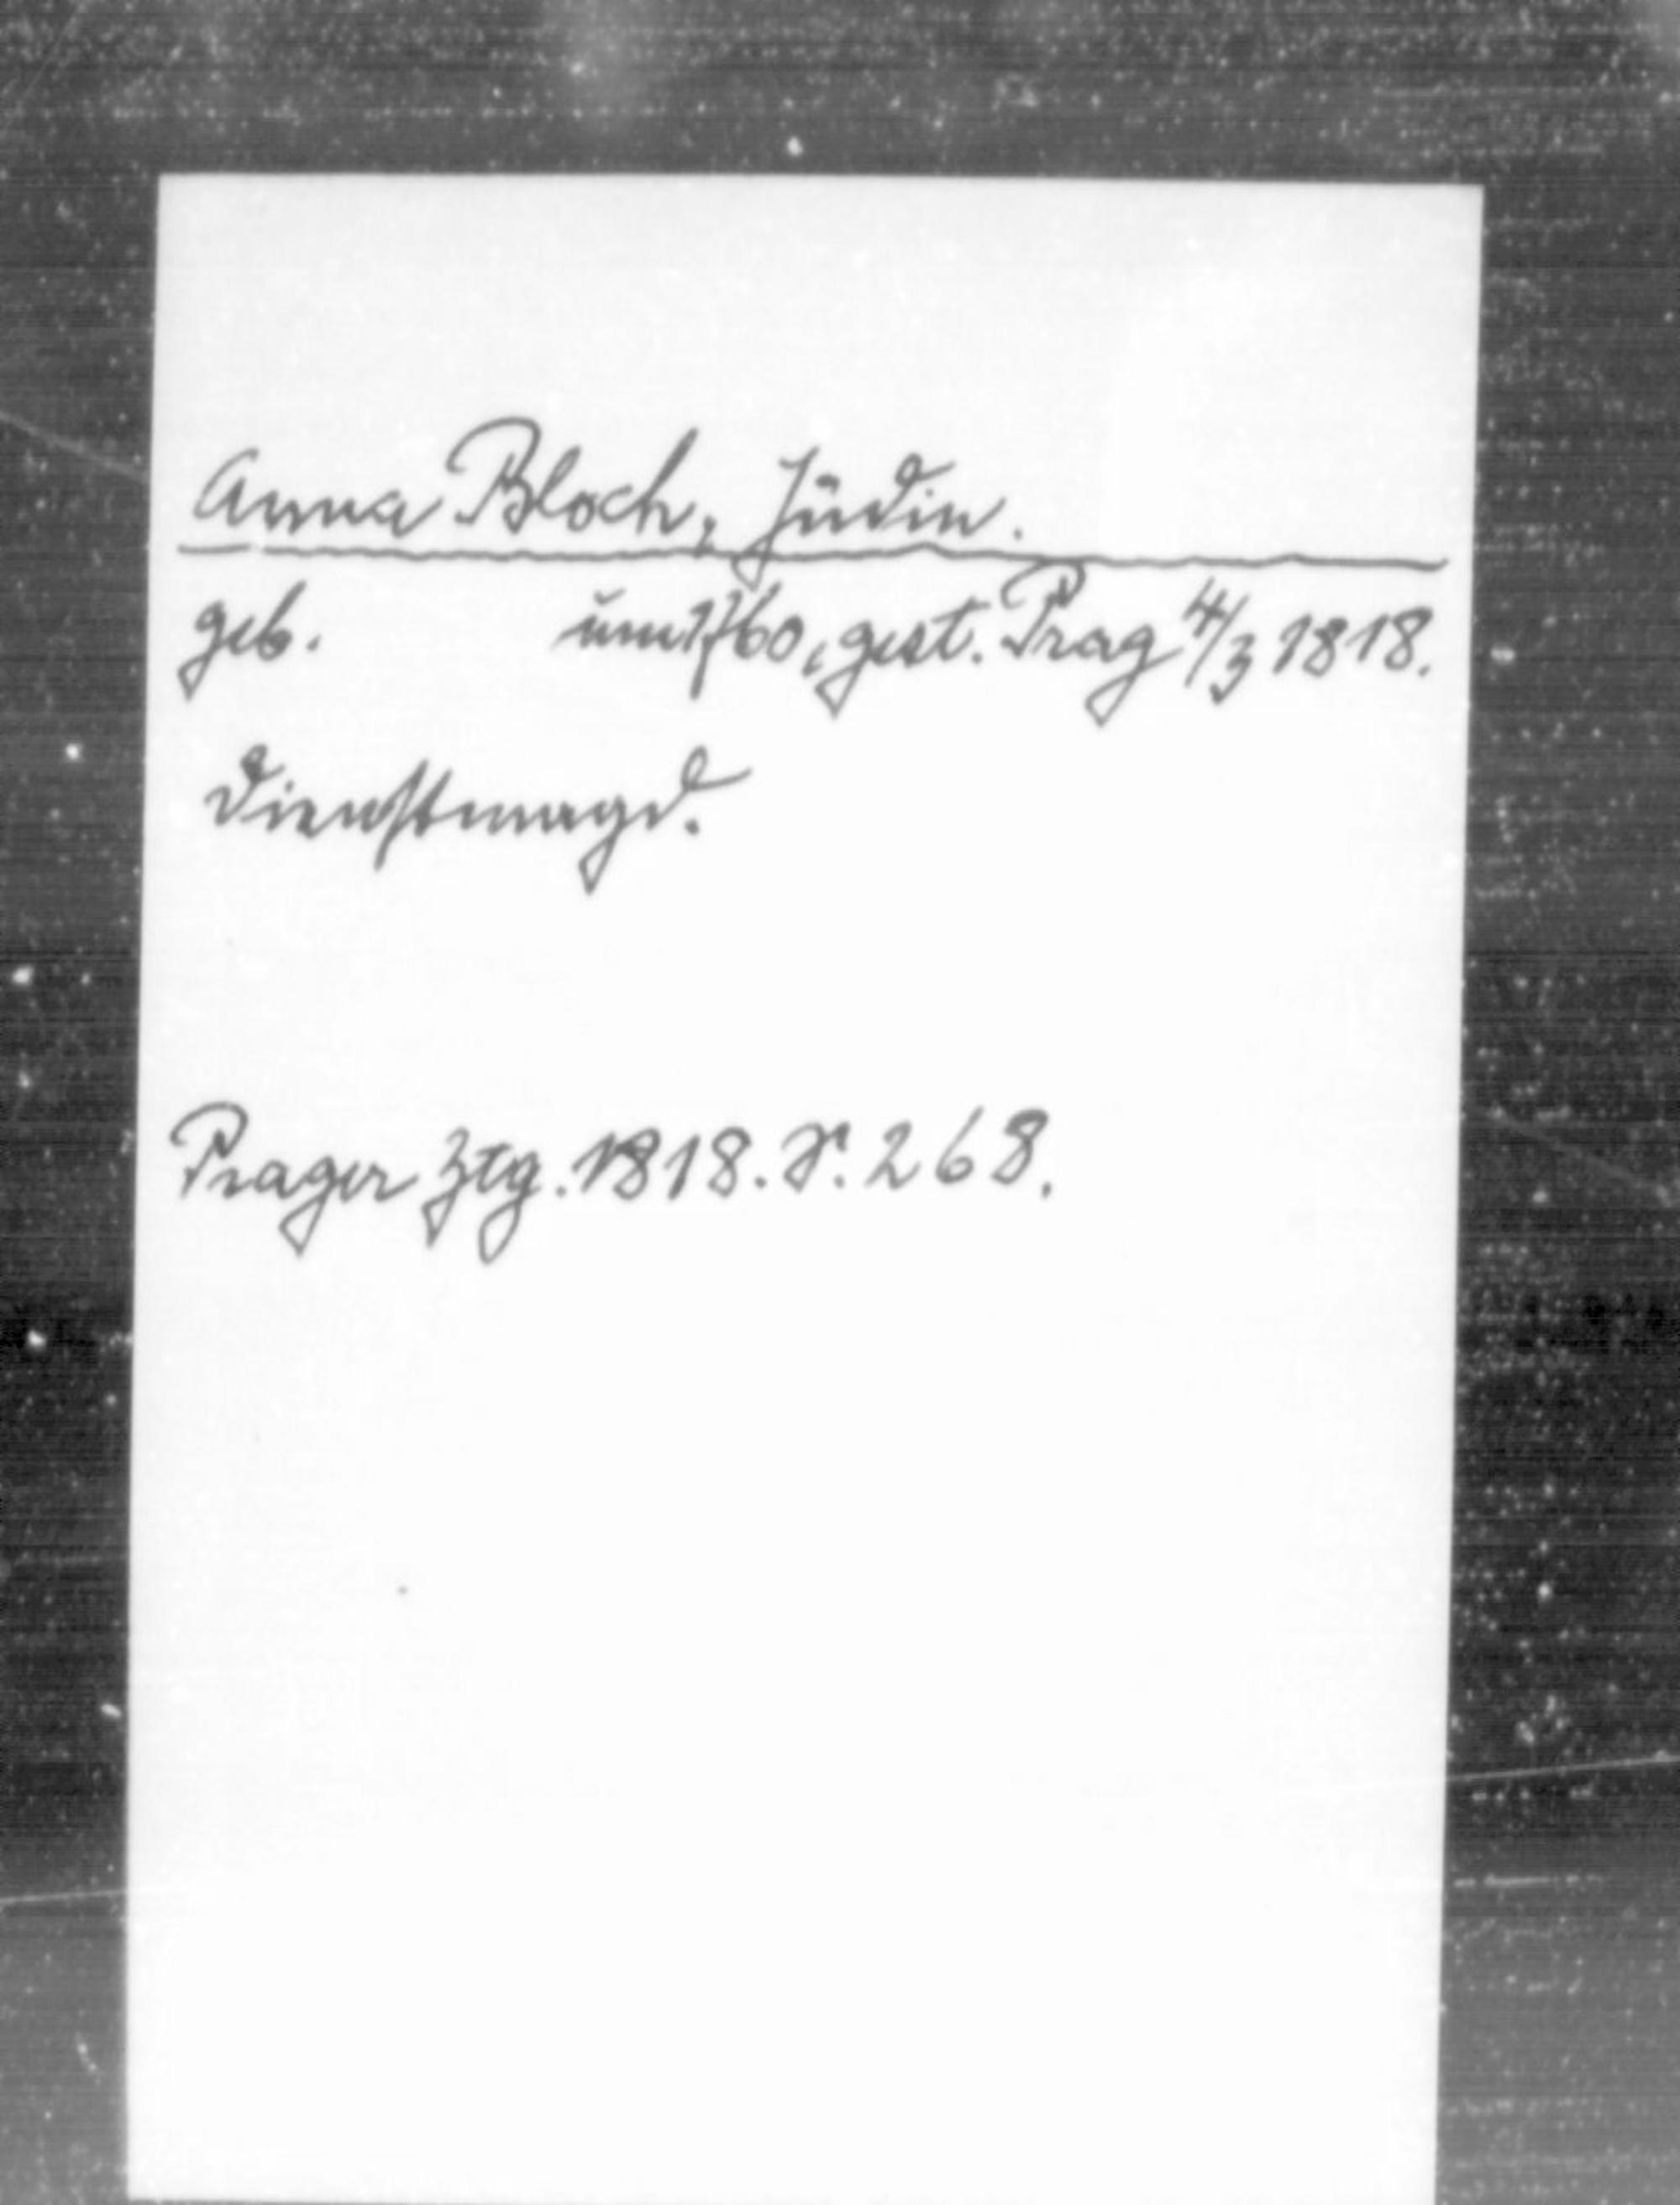 Anna Bloch, Jüdin.
geb. um 1760, gest. Prag 4/3 1818.
Dienstmagd.
Prager Ztg. 1818. S. 268.